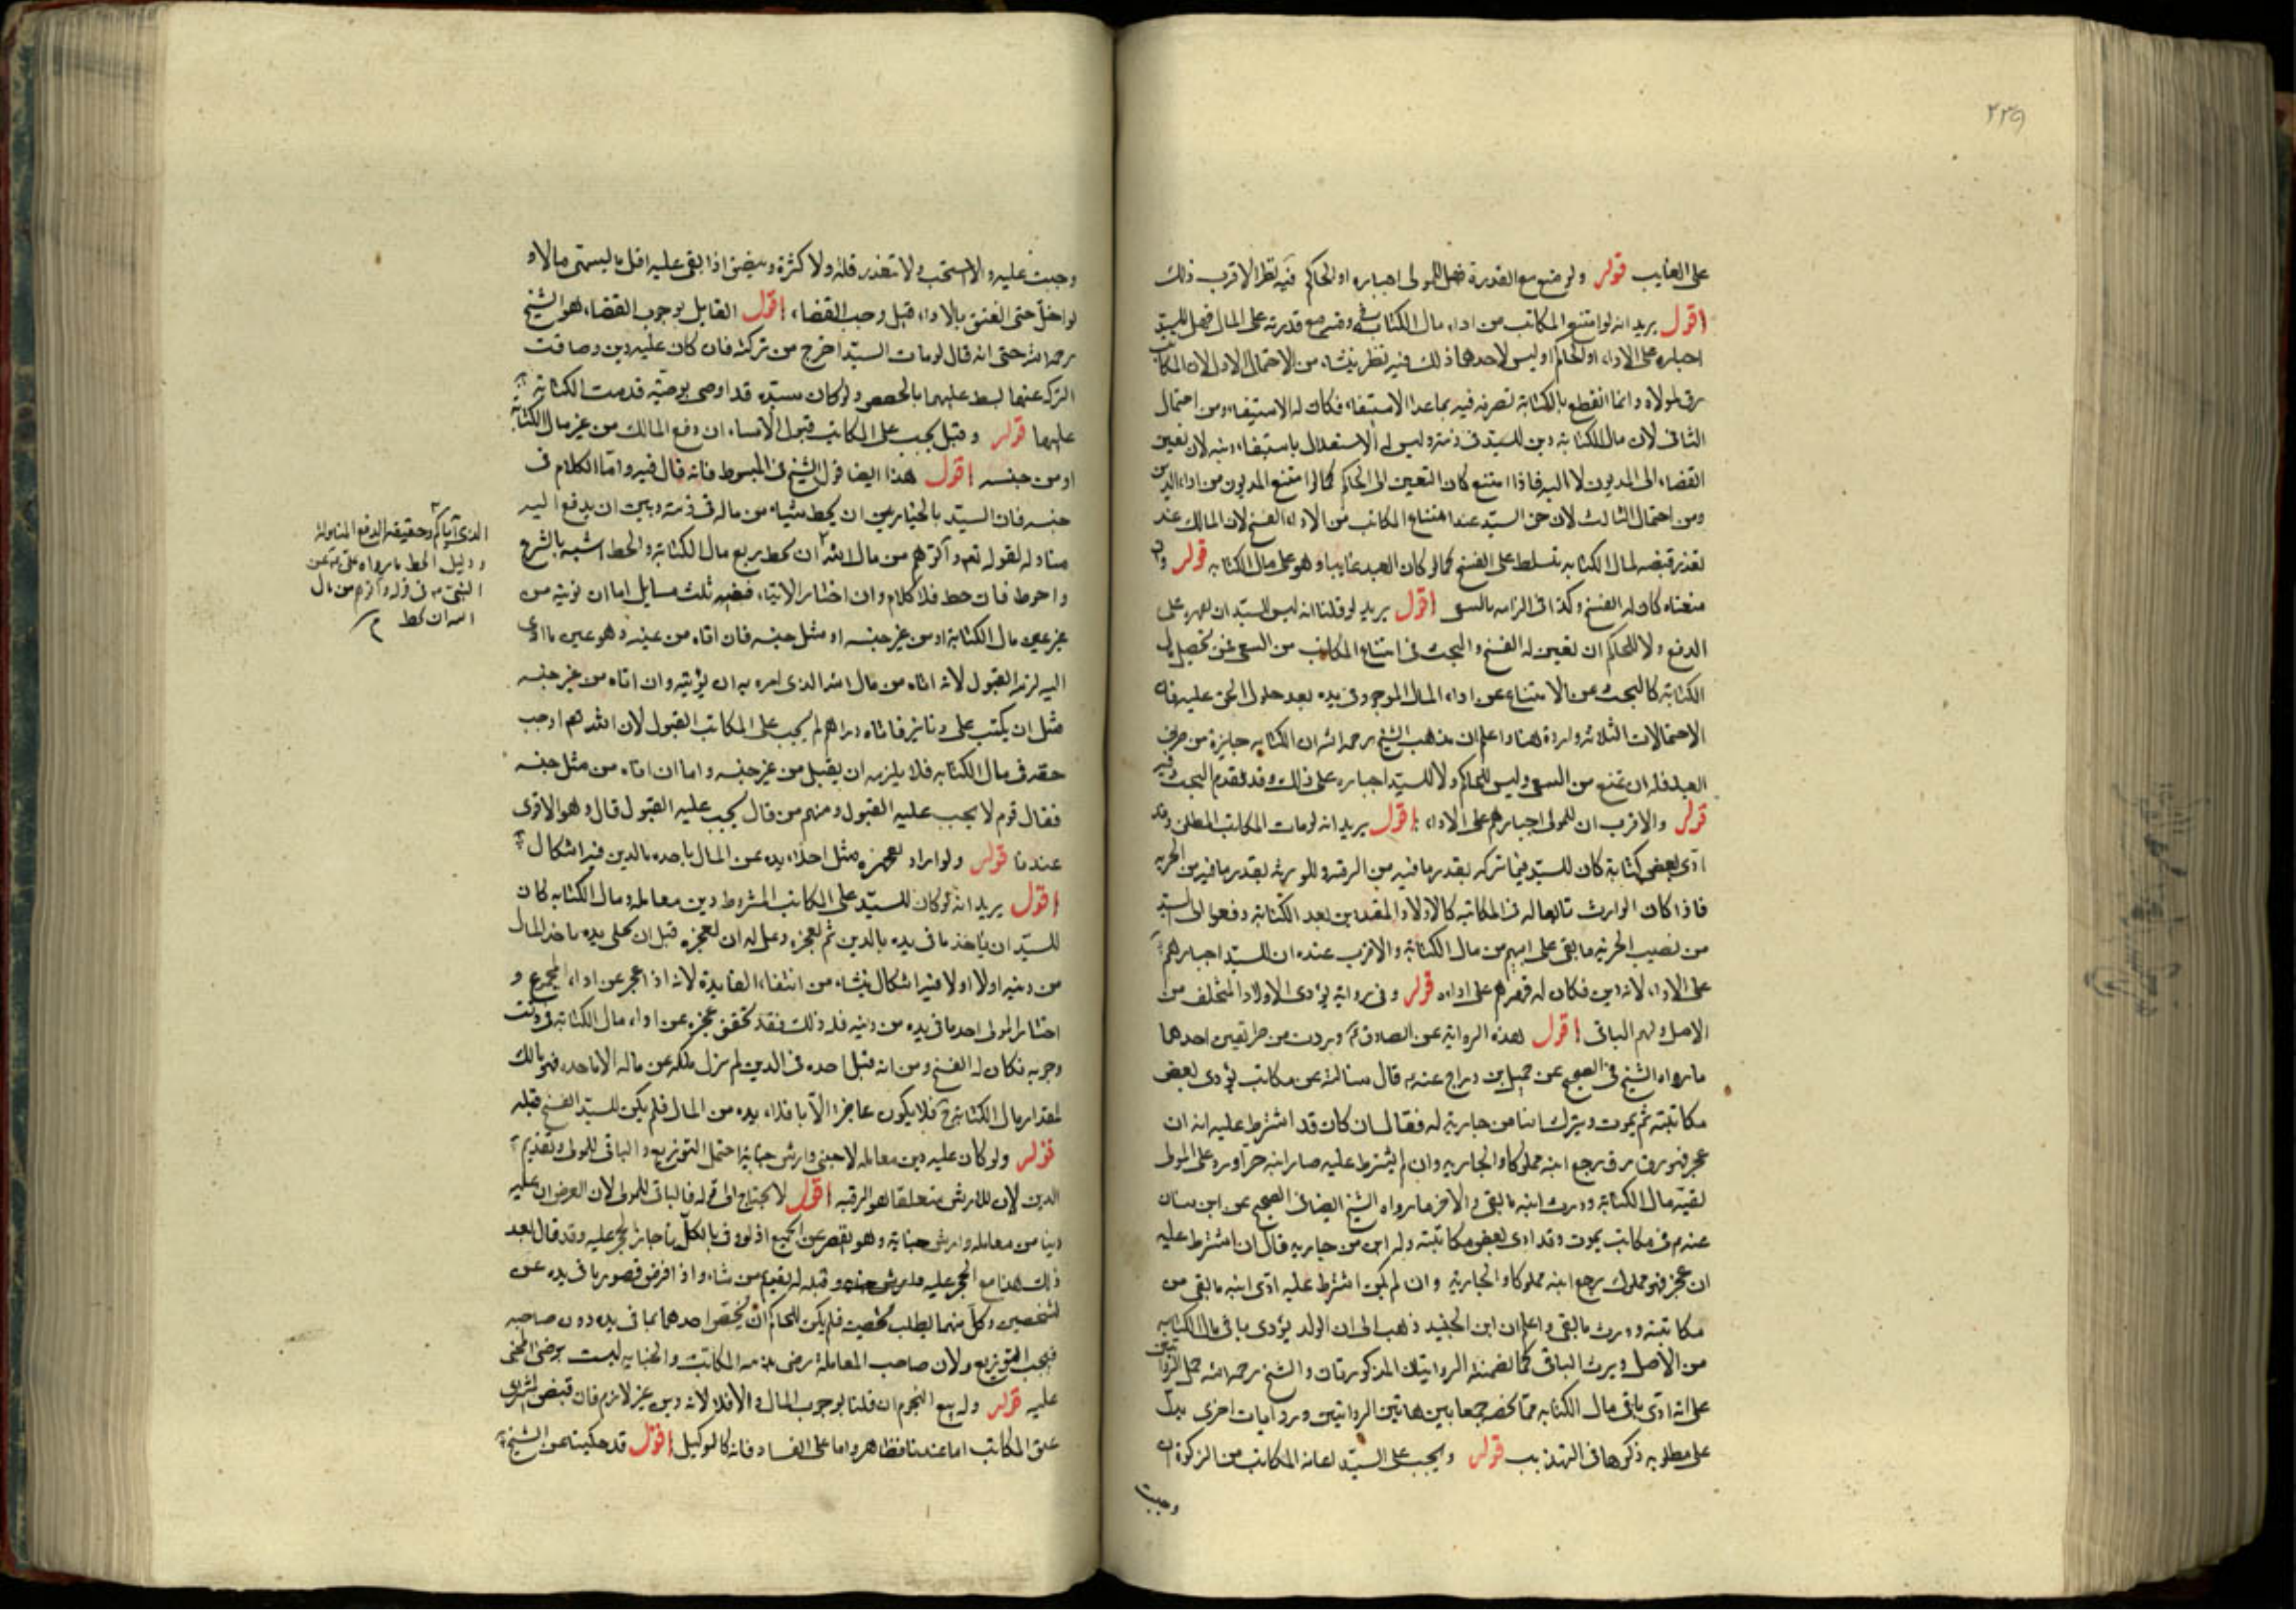 ٢٣٩
على الغايب قوله ولو منع مع القدرة فهل للمولى اجباره او للحاكم فيه نظر الاقرب ذلك
اقول يريد انه لو امتنع المكاتب من اداء مال الكتابة في وقته مع قدرته على المال فهل للسيد
اجباره على الاداء او للحاكم او ليس لاحدهما ذلك فيه نظر ينشاء من الاحتمال الاول لان المكاتب
رق لمولاه وانما انقطع بالكتابة تصرفه فيه بما عدا الاستيفاء فكان له الاستيفاء ومن احتمال
الثانى لان مال الكتابة دين للسيد فى ذمته وليس له الاستقلال باستيفاء دينه لان تعيين
القضاء الى المديون لا اليه فاذا امتنع كان التعيين الى الحاكم كما لو امتنع المديون من اداء الدين
ومن احتمال الثالث لان حق السيد عند امتناع المكاتب من الاداء الفسخ لان المالك عند
تعذر قبضه لمال الكتابه تسلط على الفسخ كما لو كان العبد غايبا وهو على مال الكتابه قوله وان
منعناه كان له الفسخ وكذا فى الزامه بالسعى اقول يريد لو قلنا انه ليس للسيد ان يجبره على
الدفع ولا للحاكم ان تعين له الفسخ والبحث فى امتناع المكاتب من السعى فى تحصيل مال
الكتابة كالبحث عن الامتناع عن اداء المال الموجود فى يده بعد حلول الحق عليه فان
الاحتمالات الثلاثه واردة هنا واعلم ان مذهب الشيخ رحمه الله ان الكتابه جايزة من طرف
العبد فله ان يمتنع من السعى وليس للحاكم ولا للسيد اجباره على ذلك وقد تقدم البحث فيه
قوله والاقرب ان للمولى اجبارهم على الاداء اقول يريد انه لو مات المكاتب المطلق وقد
ادى بعض كتابته كان للسيد فيما تركه بقدر ما فيه من الرقية وللورثه بقدر ما فيه من الحريه
فاذا كان الوارث تابعا له فى المكاتبه كالاولاد المتجددين بعد الكتابة دفعوا الى السيد
من نصيب الحرية ما بقى على ابيهم من مال الكتابة والاقرب عنده ان للسيد اجبارهم
على الاداء لانه دين فكان له قهرهم على اداءه قوله وفى رواية يؤدى الاولاد المتخلف من
الاصل ولهم الباقى اقول هذه الرواية عن الصادق ع وردت من طريقين احدهما
ما رواه الشيخ فى الصحيح عن جميل بن دراج عنه ع قال سالته عن مكاتب يؤدى بعض
مكاتبته ثم يموت ويترك ابنا من جاريته له فقال ان كان قد اشترط عليه انه ان
عجز فهو رق رجع ابنه مملوكا والجارية وان لم يشترط عليه صار ابنه حرا ورد على المولى
بقية مال الكتابة وورث ابنه ما بقى والاخر ما رواه الشيخ ايضا فى الصحيح عن ابن سنان
عنه ع فى مكاتب يموت وقد ادى بعض مكاتبته وله ابن من جاريه قال ان اشترط عليه
ان عجز فهو مملوك رجع ابنه مملوكا والجارية وان لم يكن اشترط عليه ادى ابنه ما بقى من
مكاتبته وورث ما بقى واعلم ان ابن الجنيد ذهب الى ان الولد يؤدى باقى مال الكتابه
من الاصل ويرث الباقى كما تضمنته الروايتان المذكورتان والشيخ رحمه الله حمل الروايتين
على انه ادى باقى مال الكتابه مما يخصه جمعا بين هاتين الروايتين وروايات اخرى يدل
على مطلوبه ذكرها فى التهذيب قوله ويجب على السيد اعانة المكاتب من الزكوة ان
وجبت
وجبت عليه والا استحب ولا تتقدر قلة ولا كثرة ويضيق اذا بقى عليه اقل ما يسمى مالا و
لو اخل حتى انعتق بالاداء قيل وجب القضاء اقول القايل بوجوب القضاء هو الشيخ
رحمه الله حتى انه قال لو مات السيد اخرج من تركته فان كان عليه دين وضاقت
التركة عنهما بسط عليهما بالحصص ولو كان سيده قد اوصى بوصية قدمت الكتابة
عليها قوله وقيل يجب على المكاتب قبول الايتاء ان دفع المالك من غير مال الكتابة
او من جنسه اقول هذا ايضا قول الشيخ فى المبسوط فانه قال فيه واما الكلام فى
جنسه فان السيد بالخيار بين ان يحط شيئا من ماله فى ذمته وبين ان يدفع اليه
مناولة لقوله تعم وآتوهم من مال الله ان يحط ربع مال الكتابة والحط اشبه بالشرع
واحوط فان حط فلا كلام وان اختار الايتاء ففيه ثلث مسايل اما ان يؤتيه من
غير عين مال الكتابة او من غير جنسه او مثل جنسه فان اتاه من عينه وهو عين ما ادى
اليه لزمه القبول لانه اتاه من مال الله الذى امره به ان يؤتيه وان اتاه من غير جنسه
مثل ان يكتب على دنانير فاتاه دراهم لم يجب على المكاتب القبول لان الله تعم اوجب
حقه فى مال الكتابه فلا يلزمه ان يقبل من غير جنسه واما ان اتاه من مثل جنسه
فقال قوم لا يجب عليه القبول ومنهم من قال يجب عليه القبول قال وهو الاقوى
عندنا قوله ولو اراد تعجيزه مثل اخلاء يده عن المال باخذه بالدين فيه اشكال
اقول يريد انه لو كان للسيد على المكاتب المشروط دين معاملة ومال الكتابه كان
للسيد ان ياخذ ما فى يده بالدين ثم يعجزه وهل له ان يعجزه قبل ان يخلى يده باخذ المال
من دينه اولا او لا فيه اشكال ينشاء من انتفاء الفايدة لانه اذا عجز عن اداء المجموع و
اختار المولى اخذ ما فى يده من دينه فله ذلك فقد تحقق عجزه عن اداء مال الكتابة فى وقت
وجوبه فكان له الفسخ ومن انه قبل اخذه فى الدين لم يزل ملكه عن ماله الا باخذه فهو مالك
لمقدار مال الكتابة فلا يكون عاجزا الا باخلاء يده من المال فلم يكن للسيد الفسخ قبله
قوله ولو كان عليه دين معاملة لاجنبى وارش جناية احتمل التوزيع والباقى للمولى وتقديم
الدين لان للارش متعلقا هو الرقبه اقول لا يحتاج الى قوله فالباقى للمولى لان الغرض ان عليه
دينا من معاملة وارش جناية وهو يقصر عن الجميع اذ لو وفى بالكل ما جاز الحجر عليه وقد قال بعد
ذلك هذا مع الحجر عليه وقبله له تقديم من شاء واذا فرض قصور ما فى يده عن
شخصين وكل منهما يطلب حصته فلم يكن للحاكم ان يخصص احدهما بما فى يده دون صاحبه
فيجب التوزيع ولان صاحب المعاملة رضى بذمة المكاتب والجنايه ليست برضى المجنى
عليه قوله وله بيع النجوم ان قلنا بوجوب المال والا فلا لانه دين غير لازم فان قبض المشترى
عتق المكاتب اما عندنا فظاهر واما على الفساد فانه كالوكيل اقول قد حكينا عن الشيخ
الذى آتاكم وحقيقة الدفع المناولة
ودليل الحط ما رواه على ع عن
النبى ص فى قوله وآتوهم من مال
الله ان يحط